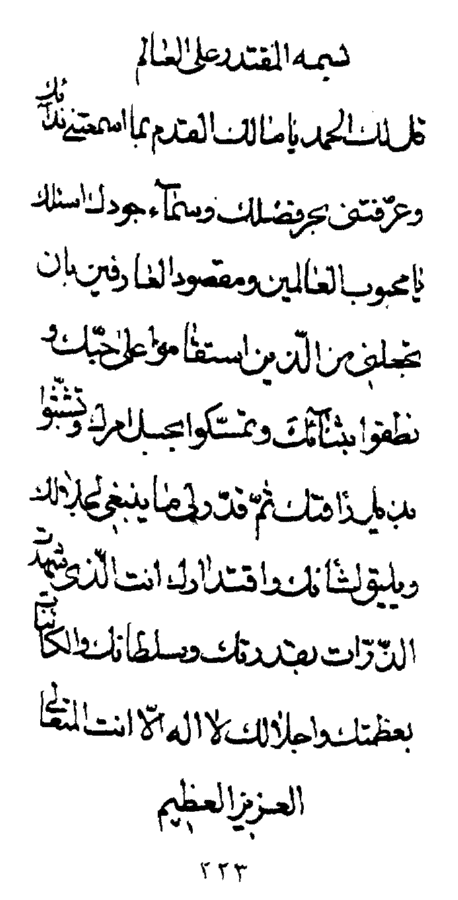 بسمه المقتدر على العالم
قل لك الحمد يا مالك القدم بما اسمعتنى ندآئك
وعرّفتنى بحر فضلك وسمآء جودك اسئلك
يا محبوب العالمين ومقصود العارفين بان
تجعلنى من الّذين استقاموا على حبّك و
نطقوا بثنآئك وتمسّكوا بحبل امرك وتشبّثوا
بذيل رأفتك ثمّ قدّر لى ما ينبغى لجلالك
ويليق لشأنك واقتدارك انت الّذى شهدت
الذّرّات بقدرتك وسلطانك والكائنات
بعظمتك واجلالك لا اله الّا انت المتعالى
العزيز العظيم
۲۲۳